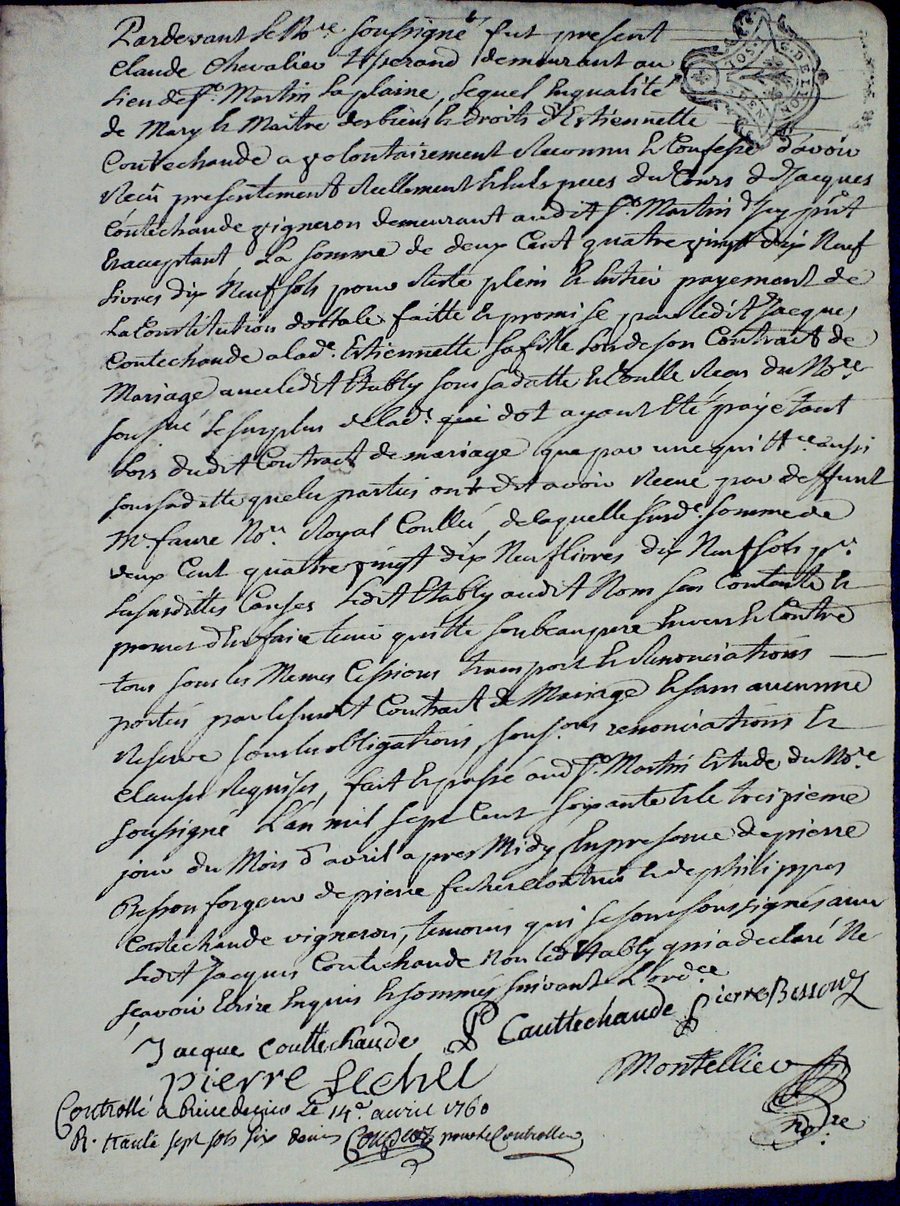 Pardevant le No.re soussigné fut present
Claude Chevalier demeurant au
Lieu de St. Martin la plaine, lequel En qualité
de Mary & Maitre des biens & droits d'Estiennette
Coutechaude a volontairement Reconnu & Confessé d'avoir
Reçu presentement Reellement des deniers de Jacques
Coutechaude vigneron demeurant audit St. Martin Icy pnt
& acceptant, La somme de deux Cent quatre vingt dix Neuf
Livres dix Neuf sols pour Reste plein & Entier payement de
La Constitution dottale faitte & promise par ledit Jacques
Coutechaude a lade. Estiennette sa fille Lors de son Contrat de
Mariage avec ledit Etably sous sa datte & Reçu du No.re
soussné le surplus de lade. dot ayant Eté payé tant
Lors dudit Contract de mariage que par une quittce. aussi
sous sa datte que les parties ont dit avoir Reçue par deffunt
Me. faure Nore. Royal, de laquelle susde. somme de
deux Cent quatre vingt dix Neuf Livres dix Neuf sols pr.
Les susdittes Causes ledit Etably audit Nom sen Contente &
promet d'En faire tenir quitte son beaupere Envers & Contre
tous sous les Memes Cessions transport & Renonciations
portés par le susdit Contract de Mariage & sans aucunne
Reserve sous les obligations, renonciations &
Clauses Requises, fait & passé aud St. Martin Estude du No.re
soussigné L'an mil sept Cent soixante & le treizieme
jour du Mois d'avril apres Midy En presence de pierre
Besson forgeur de pierre fechel & de philippes
Coutechaude vigneron, temoins qui se sont soussignés avec
Ledit Jacques Coutechaude Non led Etably qui a declaré Ne
sçavoir Ecrire Enquis & sommés suivant L'ordce
Jacque Couttechaude P Cauttechaude Pierre Besson
Pierre Fechel Montellier
Controllé a Rive de gier Le 14e. avril 1760 nore.
R. traute sept sols six deniers pour le Controlleur